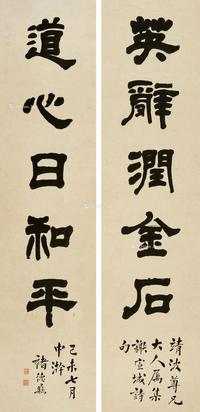 英辭潤金石
靖沈尊兄
大人屬集
謝宣城詩
句
道心日和平
己未七月
中澣
諸德彝